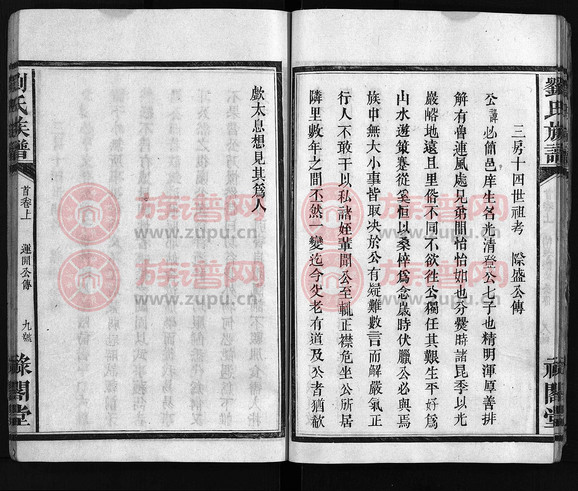 劉氏族譜
祿閣堂
三房十四世祖考　際盛公傳
公諱必簡邑庠生名光清登公之子也精明渾厚善排
解有魯連風處兄弟間怡怡如也分爨時諸昆季以光
嚴嵴地遠且里俗不同不欲往公獨任其艱生平好爲
山水遊策蹇從奚恒以桑梓爲念歲時伏臘公必與焉
族中無大小事皆取决於公有疑難數言而解嚴氣正
行人不敢干以私諸姪輩聞公至輒正襟危坐公所居
隣里數年之間不然一變迄今父老有道及公者猶欷
歔太息想見其爲人
劉氏族譜
首卷上
運開公傳
九號
祿閣堂
族谱网
www.zupu.cn
族谱网
www.zupu.cn
族谱网
www.zupu.cn
族谱网
www.zupu.cn